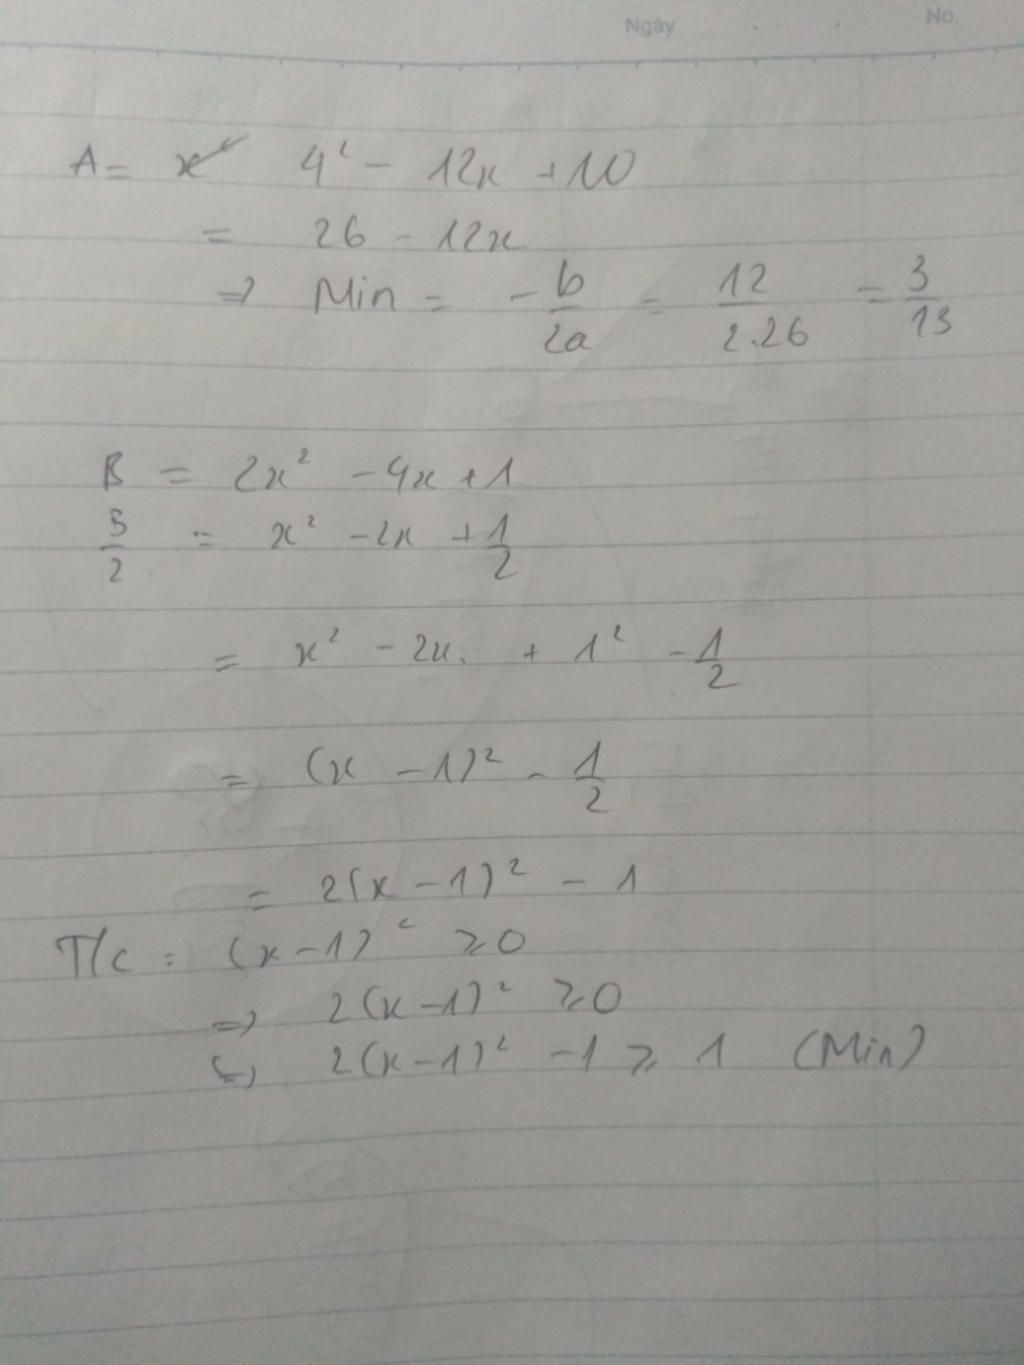 Ngày No.
A = x² 4² - 12x + 10
= 26 - 12x
=> Min = -b/2a = 12/2.26 = 3/13
B = 2x² - 4x + 1
B/2 = x² - 2x + 1/2
= x² - 2x. + 1² - 1/2
= (x - 1)² - 1/2
= 2(x - 1)² - 1
T/c : (x - 1)² ≥ 0
=> 2(x - 1)² ≥ 0
=> 2(x - 1)² - 1 ≥ 1 (Min)